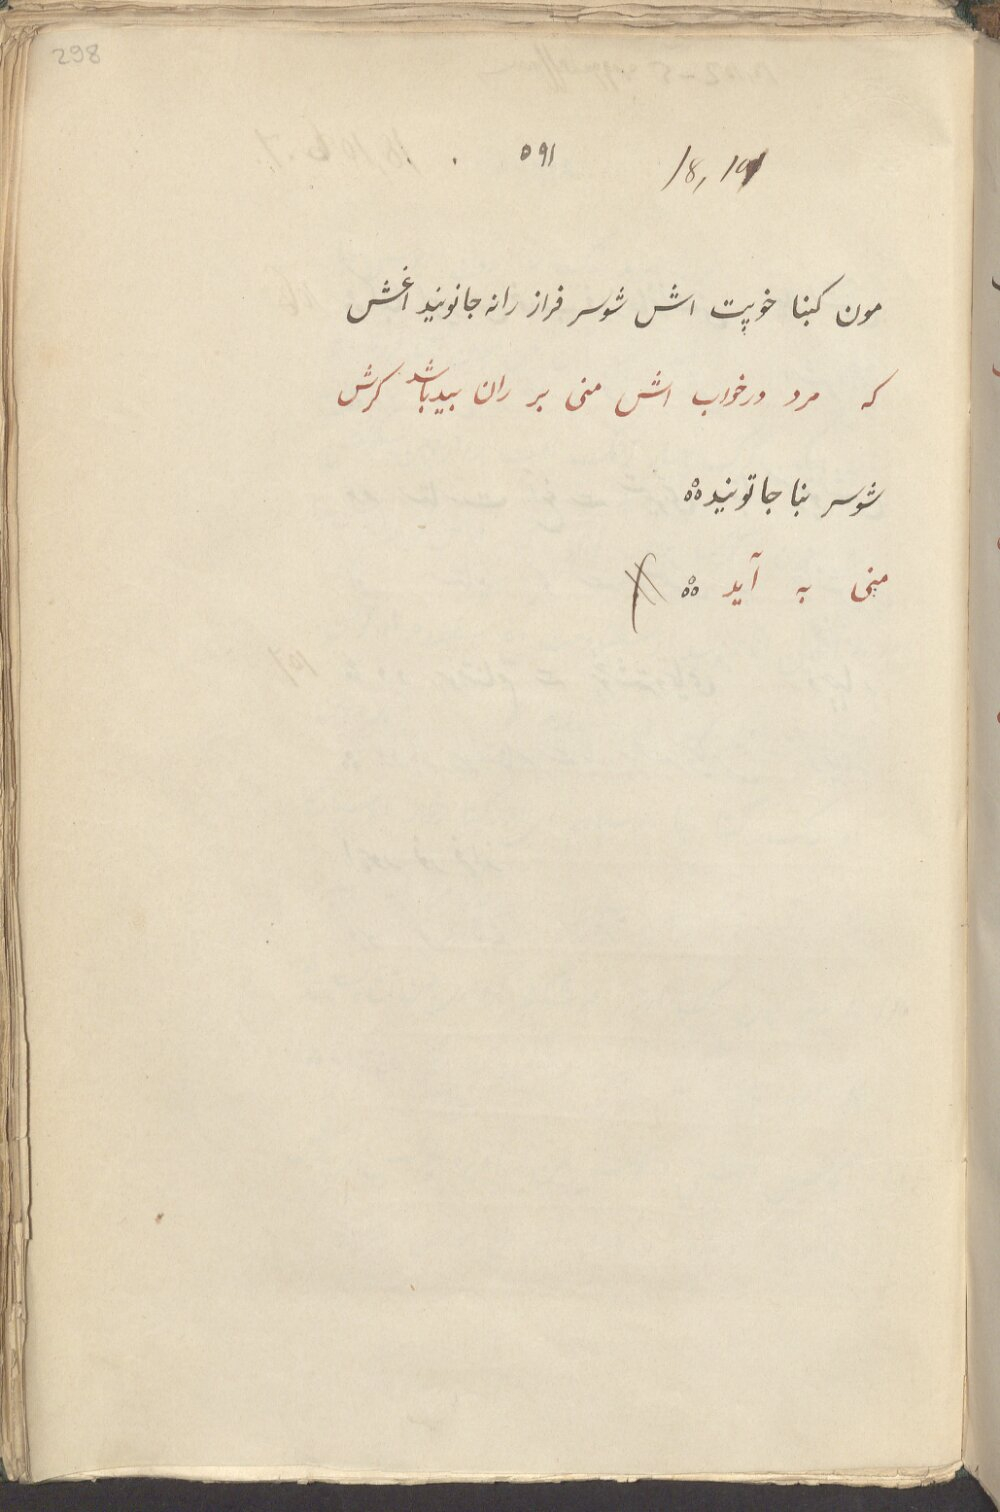 298
۵۹۱ 18, 191
مون کبنا خوپت اش شوسر فراز رانه جاتونید اغش
که مرد درخواب اش منی بر ران بیدباشد کرش
شوسر بنا جاتونید
منی به آید